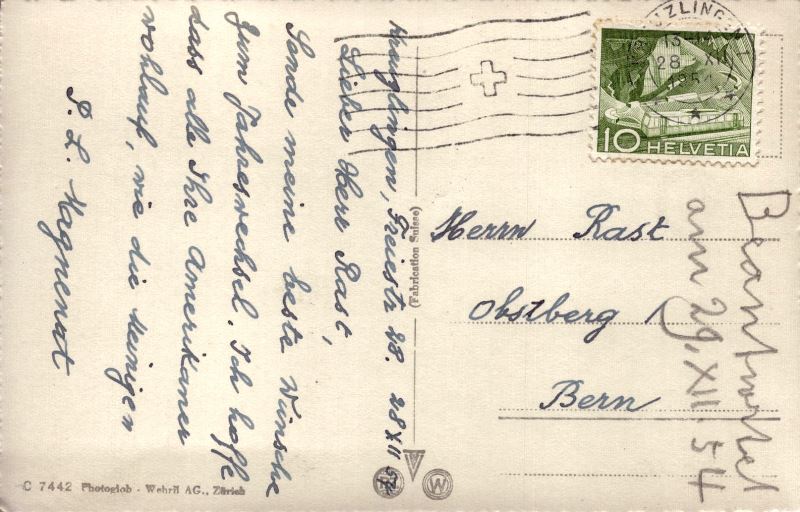 Kreuzlingen, Freiestr 28. 28 XII 54
Lieber Herr Rast,
Sende meine beste Wünsche
zum Jahreswechsel. Ich hoffe
dass alle Ihre Amerikaner
wohlauf, wie die Meinigen
P. L. Magnenat
C 7442 Photoglob - Wehrli AG., Zürich
(Fabrication Suisse)
W
28 XII
10 HELVETIA
Herrn Rast
Obstberg 1
Bern
Beantwortet
am 29. XII. 54